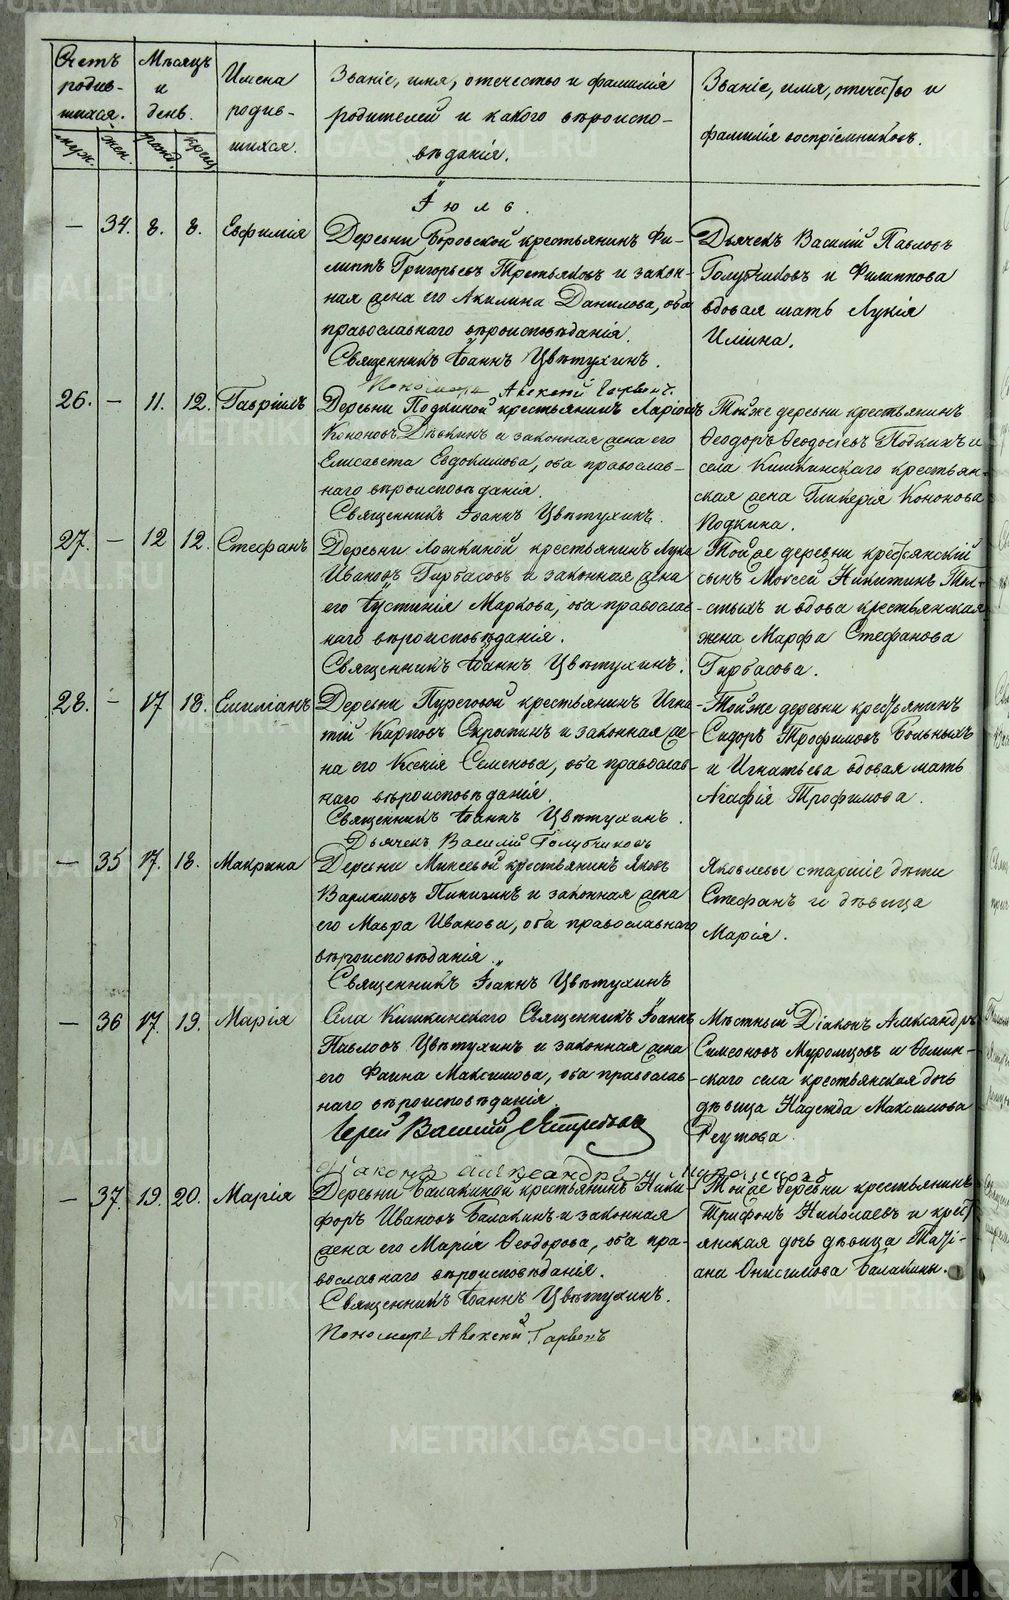 Счетъ родив-шихся.
Мѣсяцъ и день.
Имена родив-шихся.
Званіе, имя, отечество и фамилія
родителей и какого вѣроиспо-
вѣданія.
Званіе, имя, отечество и
фамилія воспріемниковъ.
муж. жен. рожд. крещ.
Іюль.
— 34. 8. 8. Евфимія
Деревни Боровской крестьянинъ Фи-
липпъ Григорьевъ Третьяковъ и закон-
ная жена его Акилина Данилова, оба
православнаго вѣроисповѣданія.
Священникъ Іоаннъ Цвѣтухинъ.
Пономарь Алексей
Дьячекъ Василій Павловъ
Голубчиковъ и Филиппова
вдовая мать Лукія
Ильина.
26. — 11. 12. Гавріилъ
Деревни Подкиной крестьянинъ Ларіонъ
Кононовъ Дѣвкинъ и законная жена его
Елисавета Евдокимова, оба православ-
наго вѣроисповѣданія.
Священникъ Іоаннъ Цвѣтухинъ.
Той же деревни крестьянинъ
Ѳеодоръ Ѳеодосіевъ Подкинъ и
села Кишкинскаго крестьян-
ская жена Гликерія Кононова
Подкина.
27. — 12 12. Стефанъ
Деревни Ложкиной крестьянинъ Лука
Ивановъ Гирбасовъ и законная жена
его Іустинія Маркова, оба православ-
наго вѣроисповѣданія.
Священникъ Іоаннъ Цвѣтухинъ.
Той же деревни крестьянскій
сынъ Моѵсей Никитинъ Тол-
-стыхъ и вдова крестьянская
жена Марфа Стефанова
Гирбасова.
28. — 17 18. Емиліанъ
Деревни Пуреговой крестьянинъ Игна-
тій Карповъ и законная же-
на его Ксенія Семенова, оба православ-
наго вѣроисповѣданія.
Священникъ Іоаннъ Цвѣтухинъ.
Дьячекъ Василій Голубчиковъ
Той же деревни крестьянинъ
Сидоръ Трофимовъ Больныхъ
и Игнатьева вдовая мать
Агафія Трофимова.
— 35 17. 18. Макрина
Деревни Микеевой крестьянинъ Яковъ
Варламовъ Пинигинъ и законная жена
его Мавра Иванова, оба православнаго
вѣроисповѣданія.
Священникъ Іоаннъ Цвѣтухинъ
Яковлевы старшіе дѣти
Стефанъ и дѣвица
Марія.
— 36 17. 19. Марія
Села Кишкинскаго Священникъ Іоаннъ
Павловъ Цвѣтухинъ и законная жена
его Фаина Максимова, оба православ-
наго вѣроисповѣданія.
Іерей Василій Ястребовъ
Діаконъ Александръ Муромцовъ
Мѣстный Діаконъ Александръ
Симеоновъ Муромцовъ и
-скаго села крестьянская дочь
дѣвица Надежда Максимова
Реутова.
— 37. 19. 20. Марія
Деревни Балакиной крестьянинъ Ники-
форъ Ивановъ Балакинъ и законная
жена его Марія Ѳеодорова, оба пра-
вославнаго вѣроисповѣданія.
Священникъ Іоаннъ Цвѣтухинъ.
Пономарь Алексей
Той же деревни крестьянинъ
Трифонъ Николаевъ и крест-
янская дочь дѣвица Тати-
ана Онисимова Балакины.
METRIKI.GASO-URAL.RU